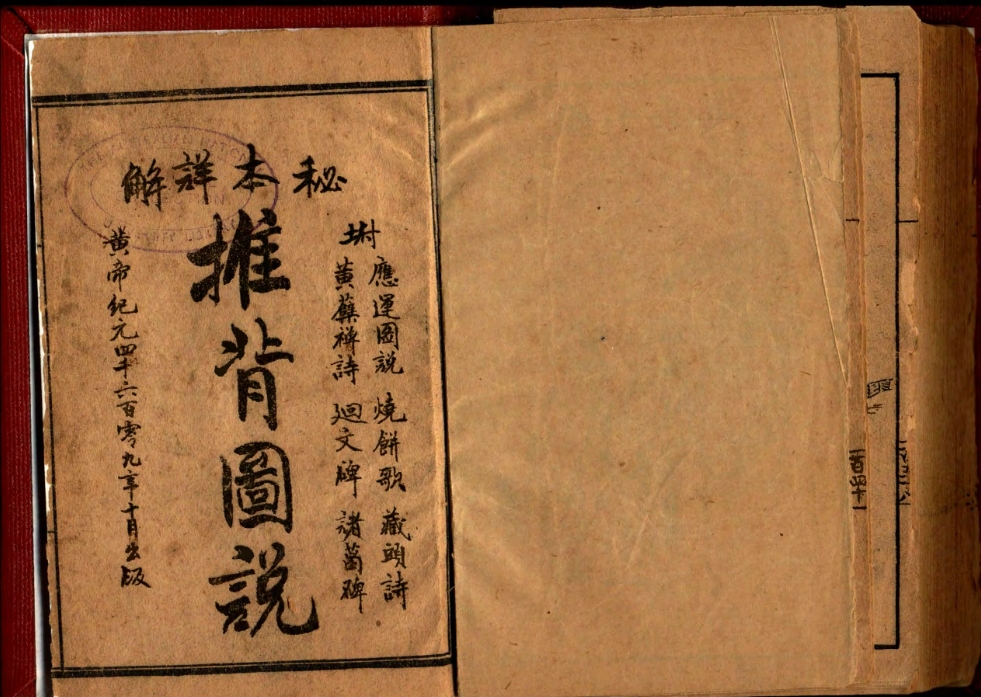 秘本詳解
附
應運圖説 燒餅歌 藏頭詩
黃蘗禅詩 廻文碑 諸葛碑
推背圖説
黃帝紀元四千六百零九年十月出版